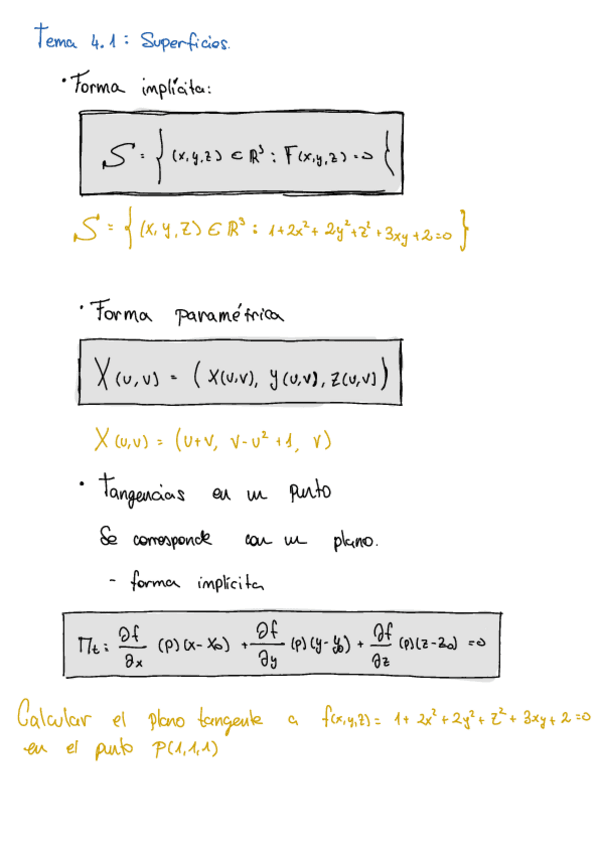 Tema 4.1: Superficies.
· Forma implícita:
S = } (x,y,z) ∈ R³ : F(x,y,z) = 0 {
S = { (x, y, z) ∈ R³ : 1+2x²+2y²+z²+3xy+2=0 }
· Forma paramétrica
X(u,v) = (X(u,v), y(u,v), z(u,v))
X(u,v) = (u+v, v-u²+1, v)
· Tangencias en un punto
Se corresponde con un plano.
- forma implícita
Πt: ∂f/∂x (p)(x-x₀) + ∂f/∂y (p)(y-y₀) + ∂f/∂z (p)(z-z₀) = 0
Calcular el plano tangente a f(x,y,z) = 1+2x²+2y²+z²+3xy+2=0
en el punto P(1,1,1)